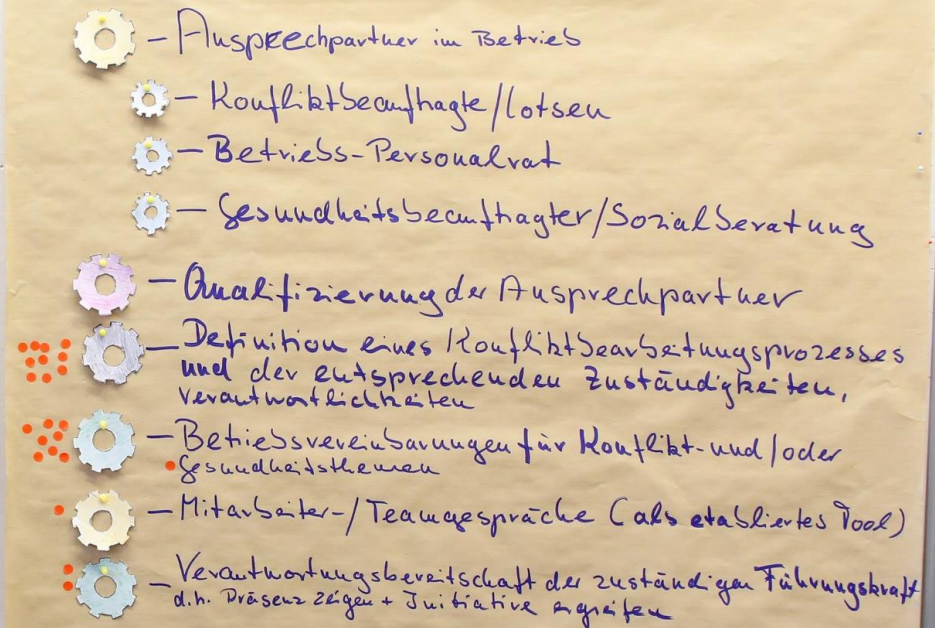 - Ansprechpartner im Betrieb
- Konfliktbeauftragte/lotsen
- Betriebs-Personalrat
- Gesundheitsbeauftragter/Sozialberatung
- Qualifizierung der Ansprechpartner
- Definition eines Konfliktbearbeitungsprozesses
und der entsprechenden Zuständigkeiten,
verantwortlichkeiten
- Betriebsvereinbarungen für Konflikt- und/oder
Gesundheitsthemen
- Mitarbeiter-/Teamgespräche (als etabliertes Tool)
- Verantwortungsbereitschaft der zuständigen Führungskraft
d.h. Präsenz zeigen + Initiative ergreifen